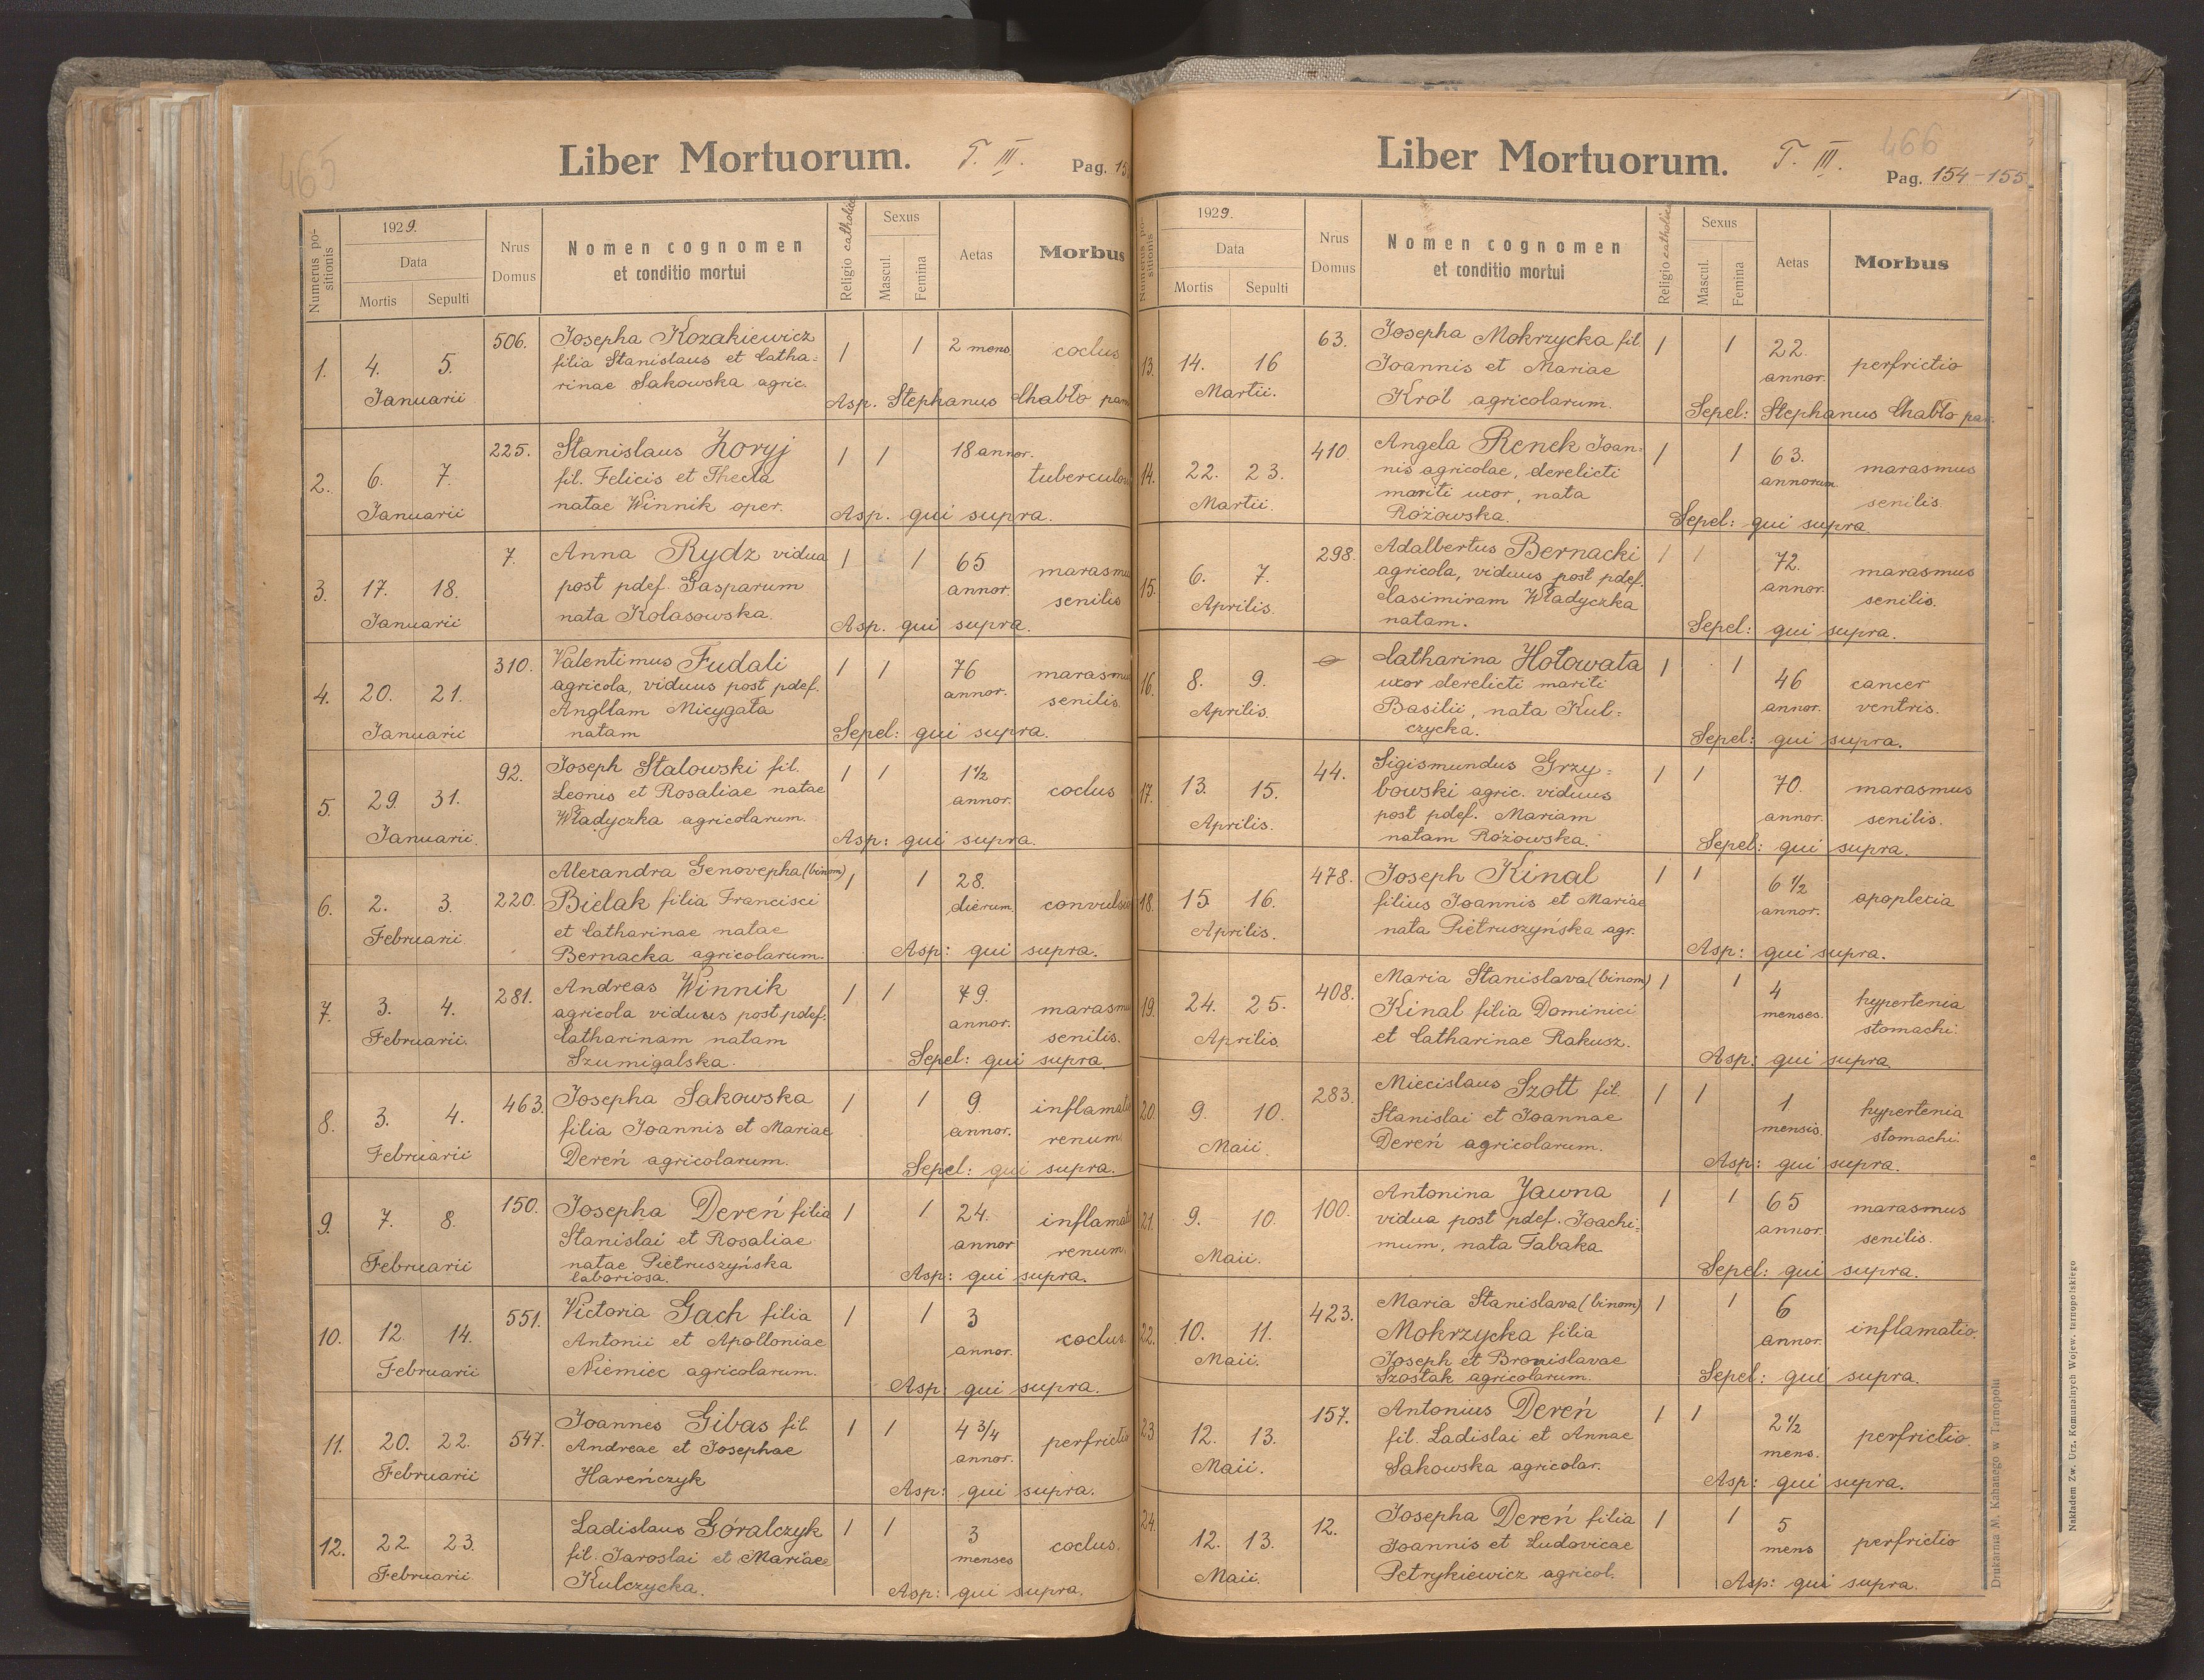 465
Liber Mortuorum. T. III. Pag. 15
Numerus po-
sitionis
1929.
Data
Mortis Sepulti
Nrus
Domus
Nomen cognomen
et conditio mortui
Religio catholica
Sexus
Mascul.
Femina
Aetas
Morbus
1. 4. 5. Januarii 506.
Josepha Kozakiewicz
filia Stanislaus et Catha=
rinae Sakowska agric.
1 1 2 mens. coclus
Asp. Stephanus Chabło
2. 6. 7. Januarii 225.
Stanislaus Zoryj
fil. Felicis et Thecla
natae Winnik oper.
1 1 18 annor.
Asp. qui supra.
3. 17. 18. Januarii 7.
Anna Rydz vidua
post pdef. Gasparum
nata Kolasowska.
1 1 65 annor. senilis
Asp. qui supra.
4. 20. 21. Januarii 310.
Valentimus Fudali
agricola, viduus post pdef.
Angllam Micygała
natam
1 1 76 annor. senilis.
Sepel: qui supra.
5. 29. 31. Januarii. 92.
Joseph Stalowski fil.
Leonis et Rosaliae natae
Władyczka agricolarum.
1 1 1½ annor. coclus
Asp: qui supra.
6. 2. 3. Februarii 220.
Alexandra Genovepha (binom)
Bielak filia Francisci
et Catharinae natae
Bernacka agricolarum.
1 1 28. dierum.
Asp: qui supra.
7. 3. 4. Februarii. 281.
Andreas Winnik
agricola viduus post pdef.
Catharinam natam
Szumigalska.
1 1 79. annor. senilis.
Sepel: qui supra.
8. 3. 4. Februarii 463.
Josepha Sakowska
filia Joannis et Mariae
Dereń agricolarum.
1 1 9. annor. renum.
Sepel: qui supra.
9. 7. 8. Februarii 150.
Josepha Dereń filia
Stanislai et Rosaliae
natae Pietruszyńska
laboriosa.
1 1 24. annor renum.
Asp: qui supra.
10. 12. 14. Februarii 551.
Victoria Gach filia
Antonii et Apolloniae
Niemiec agricolarum.
1 1 3 annor. coclus.
Asp: qui supra.
11. 20. 22. Februarii 547.
Joannes Gibas fil.
Andreae et Josephae
Hareńczyk
1 1 4 3/4 annor.
Asp: qui supra.
12. 22. 23. Februarii
Ladislaus Góralczyk
fil. Jaroslai et Mariae
Kulczycka.
1 1 3 menses coclus.
Asp: qui supra.
466
Liber Mortuorum. T. III. Pag. 154-155
Numerus po-
sitionis
1929.
Data
Mortis Sepulti
Nrus
Domus
Nomen cognomen
et conditio mortui
Religio catholica
Sexus
Mascul.
Femina
Aetas
Morbus
13. 14. 16 Martii. 63.
Josepha Mokrzycka fil.
Joannis et Mariae
Król agricolarum.
1 1 22. annor. perfrictio
Sepel: Stephanus Chabło
14. 22. 23. Martii. 410
Angela Renek Joan=
nis agricolae, derelicti
mariti uxor, nata
Różowska.
1 1 63. annorum. marasmus senilis.
Sepel: qui supra.
15. 6. 7. Aprilis. 298.
Adalbertus Bernacki
agricola, viduus post pdef.
Casimiram Władyczka
natam.
1 1 72. annor. marasmus senilis.
Sepel: qui supra.
16. 8. 9. Aprilis.
Catharina Hołowata
uxor derelicti mariti
Basilii, nata Kul=
czycka.
1 1 46 annor. cancer ventris.
Sepel: qui supra.
17. 13. 15. Aprilis. 44.
Sigismundus Grzy=
bowski agric. viduus
post pdef. Mariam
natam Różowska.
1 1 70. annor. marasmus senilis.
Sepel: qui supra.
18. 15. 16. Aprilis. 478.
Joseph Kinal
filius Joannis et Mariae
nata Pietruszyńska agr.
1 1 6½ annor. apoplexia
Asp: qui supra.
19. 24. 25. Aprilis. 408.
Maria Stanislava (binom)
Kinal filia Dominici
et Catharinae Rakusz.
1 1 4 menses. hypertenia stomachi.
Asp: qui supra
20. 9. 10. Maii. 283.
Miecislaus Szott fil.
Stanislai et Joannae
Dereń agricolarum.
1 1 1 mensis. hypertenia stomachi.
Asp: qui supra.
21. 9. 10. Maii. 100.
Antonina Jawna
vidua post pdef. Joachi=
mum, nata Tabaka
1 1 65 annor. marasmus senilis.
Sepel: qui supra.
22. 10. 11. Maii. 423.
Maria Stanislava (binom)
Mokrzycka filia
Joseph et Bronislavae
Szostak agricolarum.
1 1 6 annor. inflamatio.
Sepel: qui supra.
23 12. 13. Maii. 157.
Antonius Dereń
fil. Ladislai et Annae
Sakowska agricolar.
1 1 2½ mens. perfrictio.
Asp: qui supra.
24. 12. 13. Maii. 12.
Josepha Dereń filia
Joannis et Ludovicae
Petrykiewicz agricol.
1 1 5 mens perfrictio
Asp: qui supra.
Drukarnia M. Kahanego w Tarnopolu
Nakładem Zw. Urz. Komunalnych Wojew. tarnopolskiego